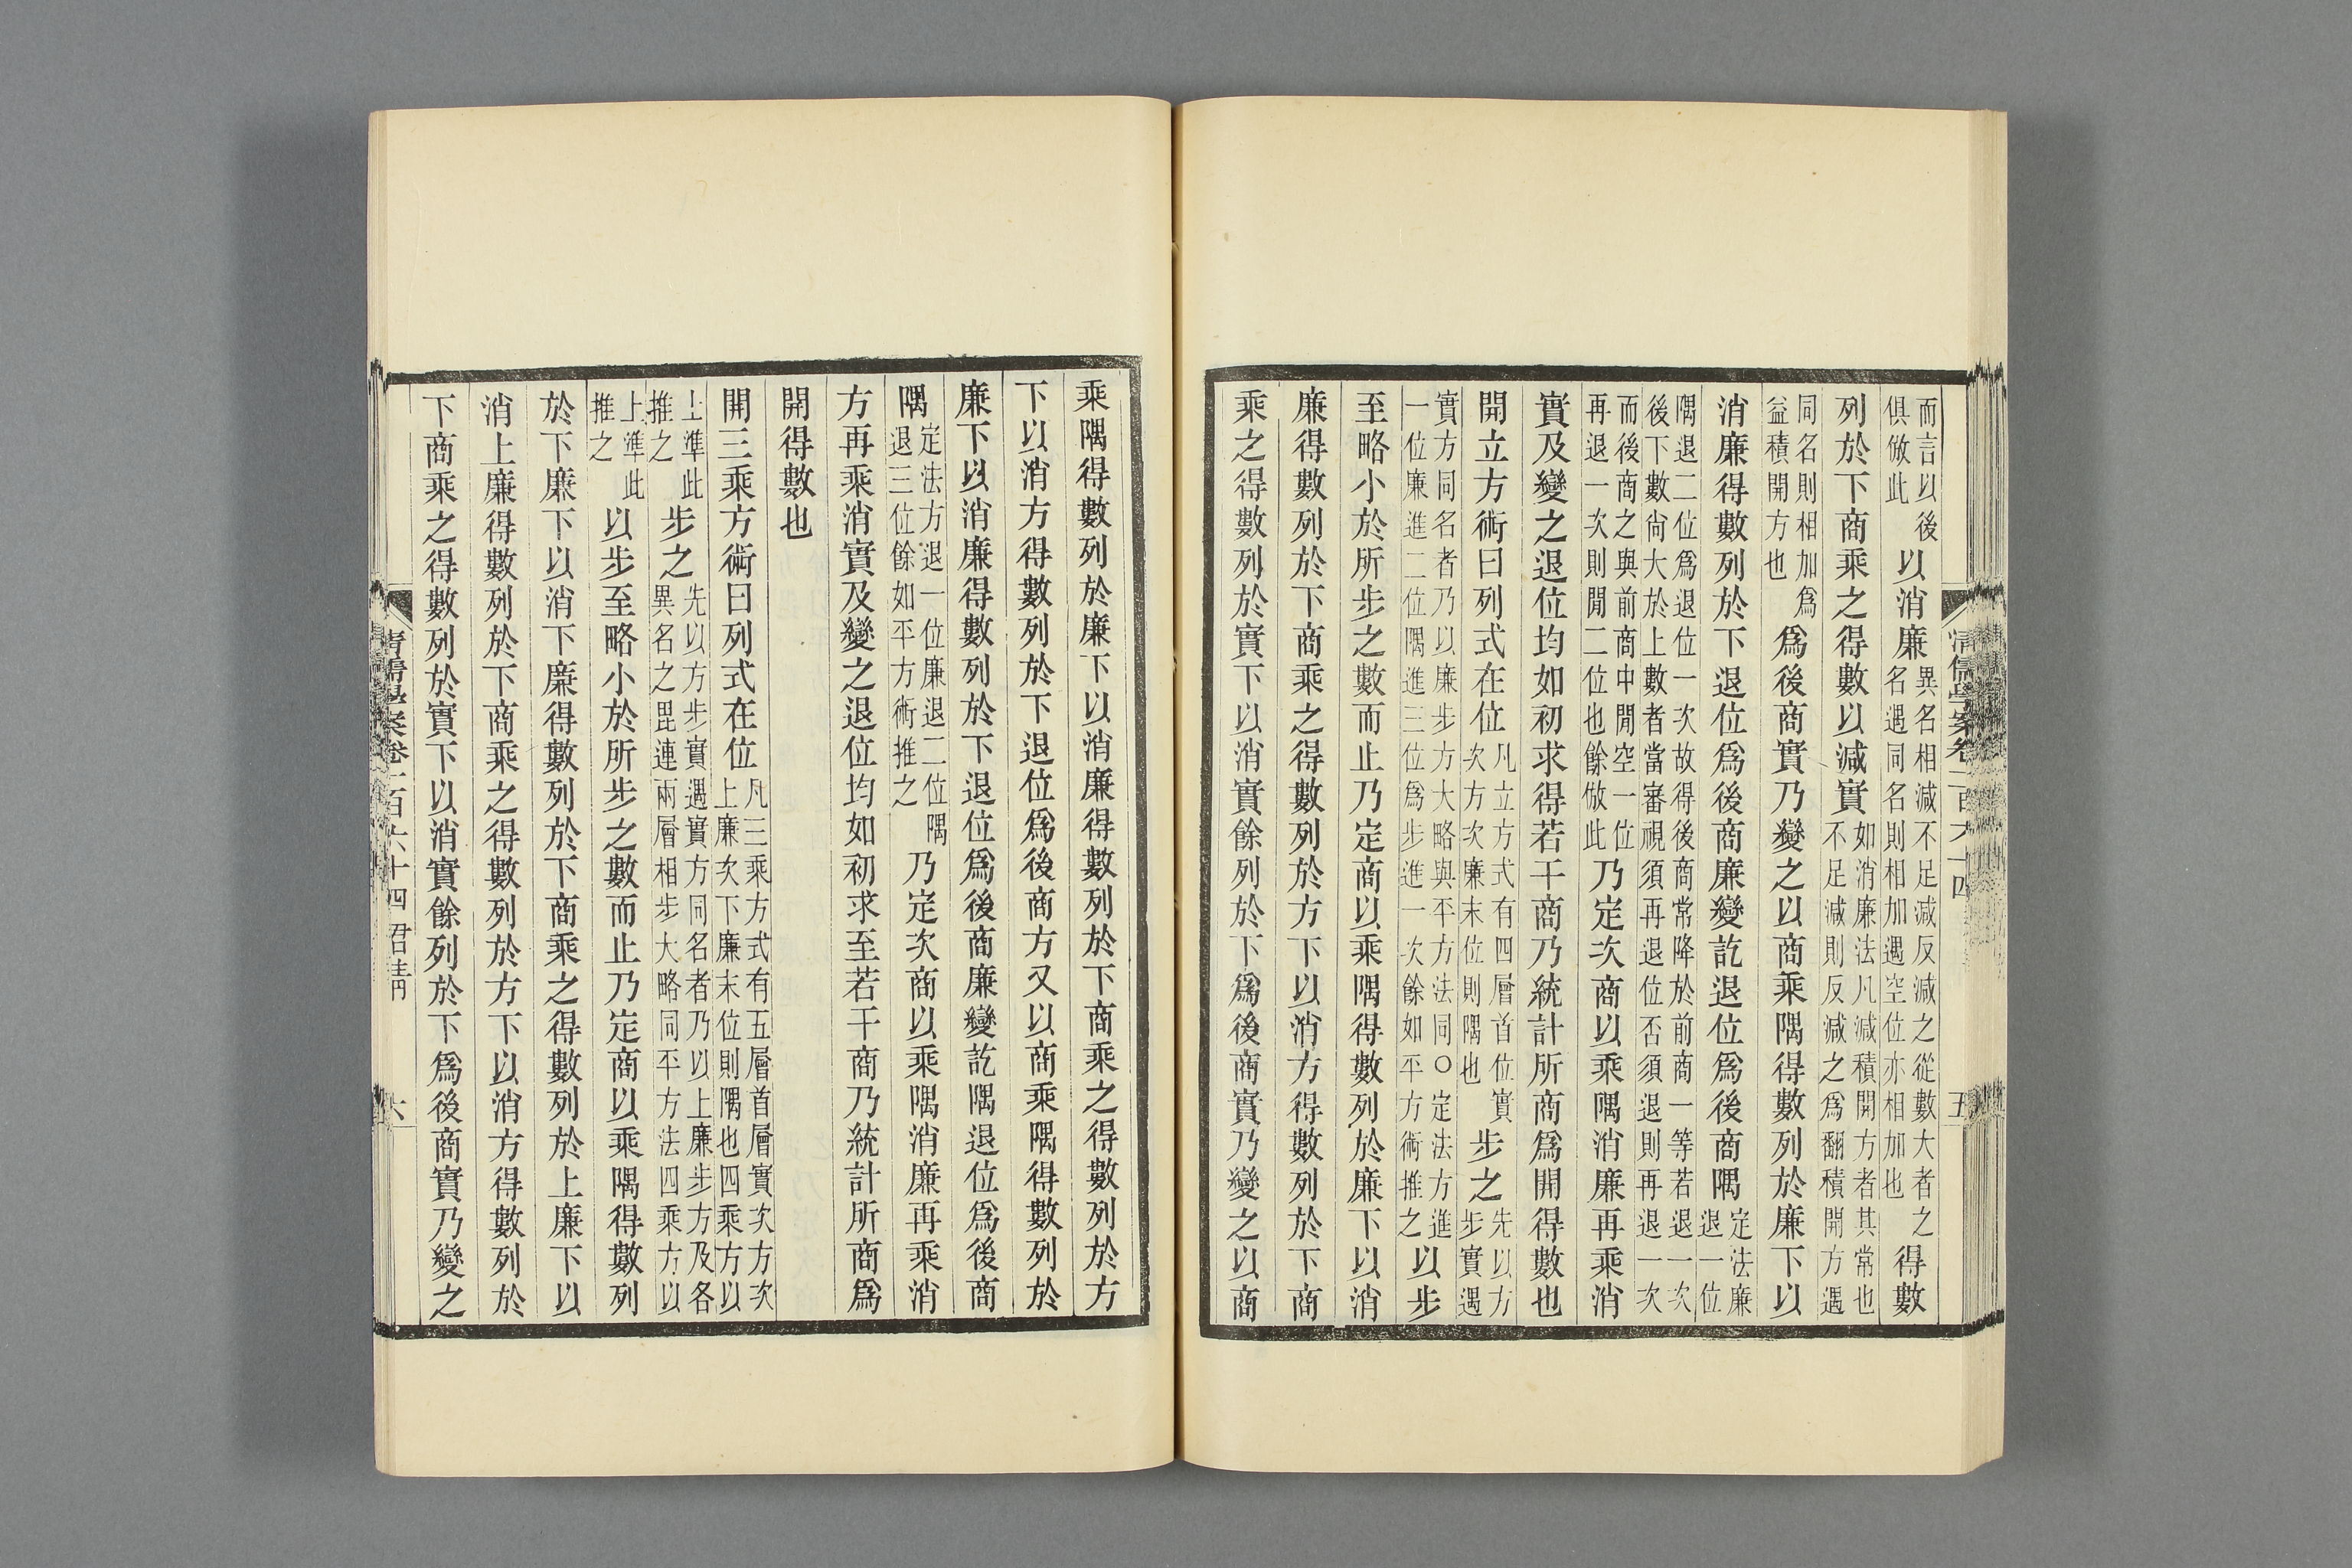 而言以後俱倣此以消廉異名相減不足減反減之從數大者之名遇同名則相加遇空位亦相加也得數
列於下商乘之得數以減實如消廉法凡減積開方者其常也不足減則反減之爲翻積開方遇
同名則相加爲益積開方也爲後商實乃變之以商乘隅得數列於廉下以
消廉得數列於下退位爲後商廉變訖退位爲後商隅定法廉退一位
隅退二位爲退位一次故得後商常降於前商一等若退一次後下數尙大於上數者當審視須再退位否須退則再退一次
而後商之與前商中閒空一位再退一次則閒二位也餘倣此乃定次商以乘隅消廉再乘消
實及變之退位均如初求得若干商乃統計所商爲開得數也
開立方術曰列式在位凡立方式有四層首位實次方次廉末位則隅也步之先以方步實遇
實方同名者乃以廉步方大略與平方法同○定法方進一位廉進二位隅進三位爲步進一次餘如平方術推之以步
至略小於所步之數而止乃定商以乘隅得數列於廉下以消
廉得數列於下商乘之得數列於方下以消方得數列於下商
乘之得數列於實下以消實餘列於下爲後商實乃變之以商
清儒學案卷一百六十四
五
乘隅得數列於廉下以消廉得數列於下商乘之得數列於方
下以消方得數列於下退位爲後商方又以商乘隅得數列於
廉下以消廉得數列於下退位爲後商廉變訖隅退位爲後商
隅定法方退一位廉退二位隅退三位餘如平方術推之乃定次商以乘隅消廉再乘消
方再乘消實及變之退位均如初求至若干商乃統計所商爲
開得數也
開三乘方術曰列式在位凡三乘方式有五層首層實次方次上廉次下廉末位則隅也四乘方以
上準此推之步之先以方步實遇實方同名者乃以上廉步方及各異名之毘連兩層相步大略同平方法四乘方以
上準此推之以步至略小於所步之數而止乃定商以乘隅得數列
於下廉下以消下廉得數列於下商乘之得數列於上廉下以
消上廉得數列於下商乘之得數列於方下以消方得數列於
下商乘之得數列於實下以消實餘列於下爲後商實乃變之
清儒學案卷一百六十四 君青
六